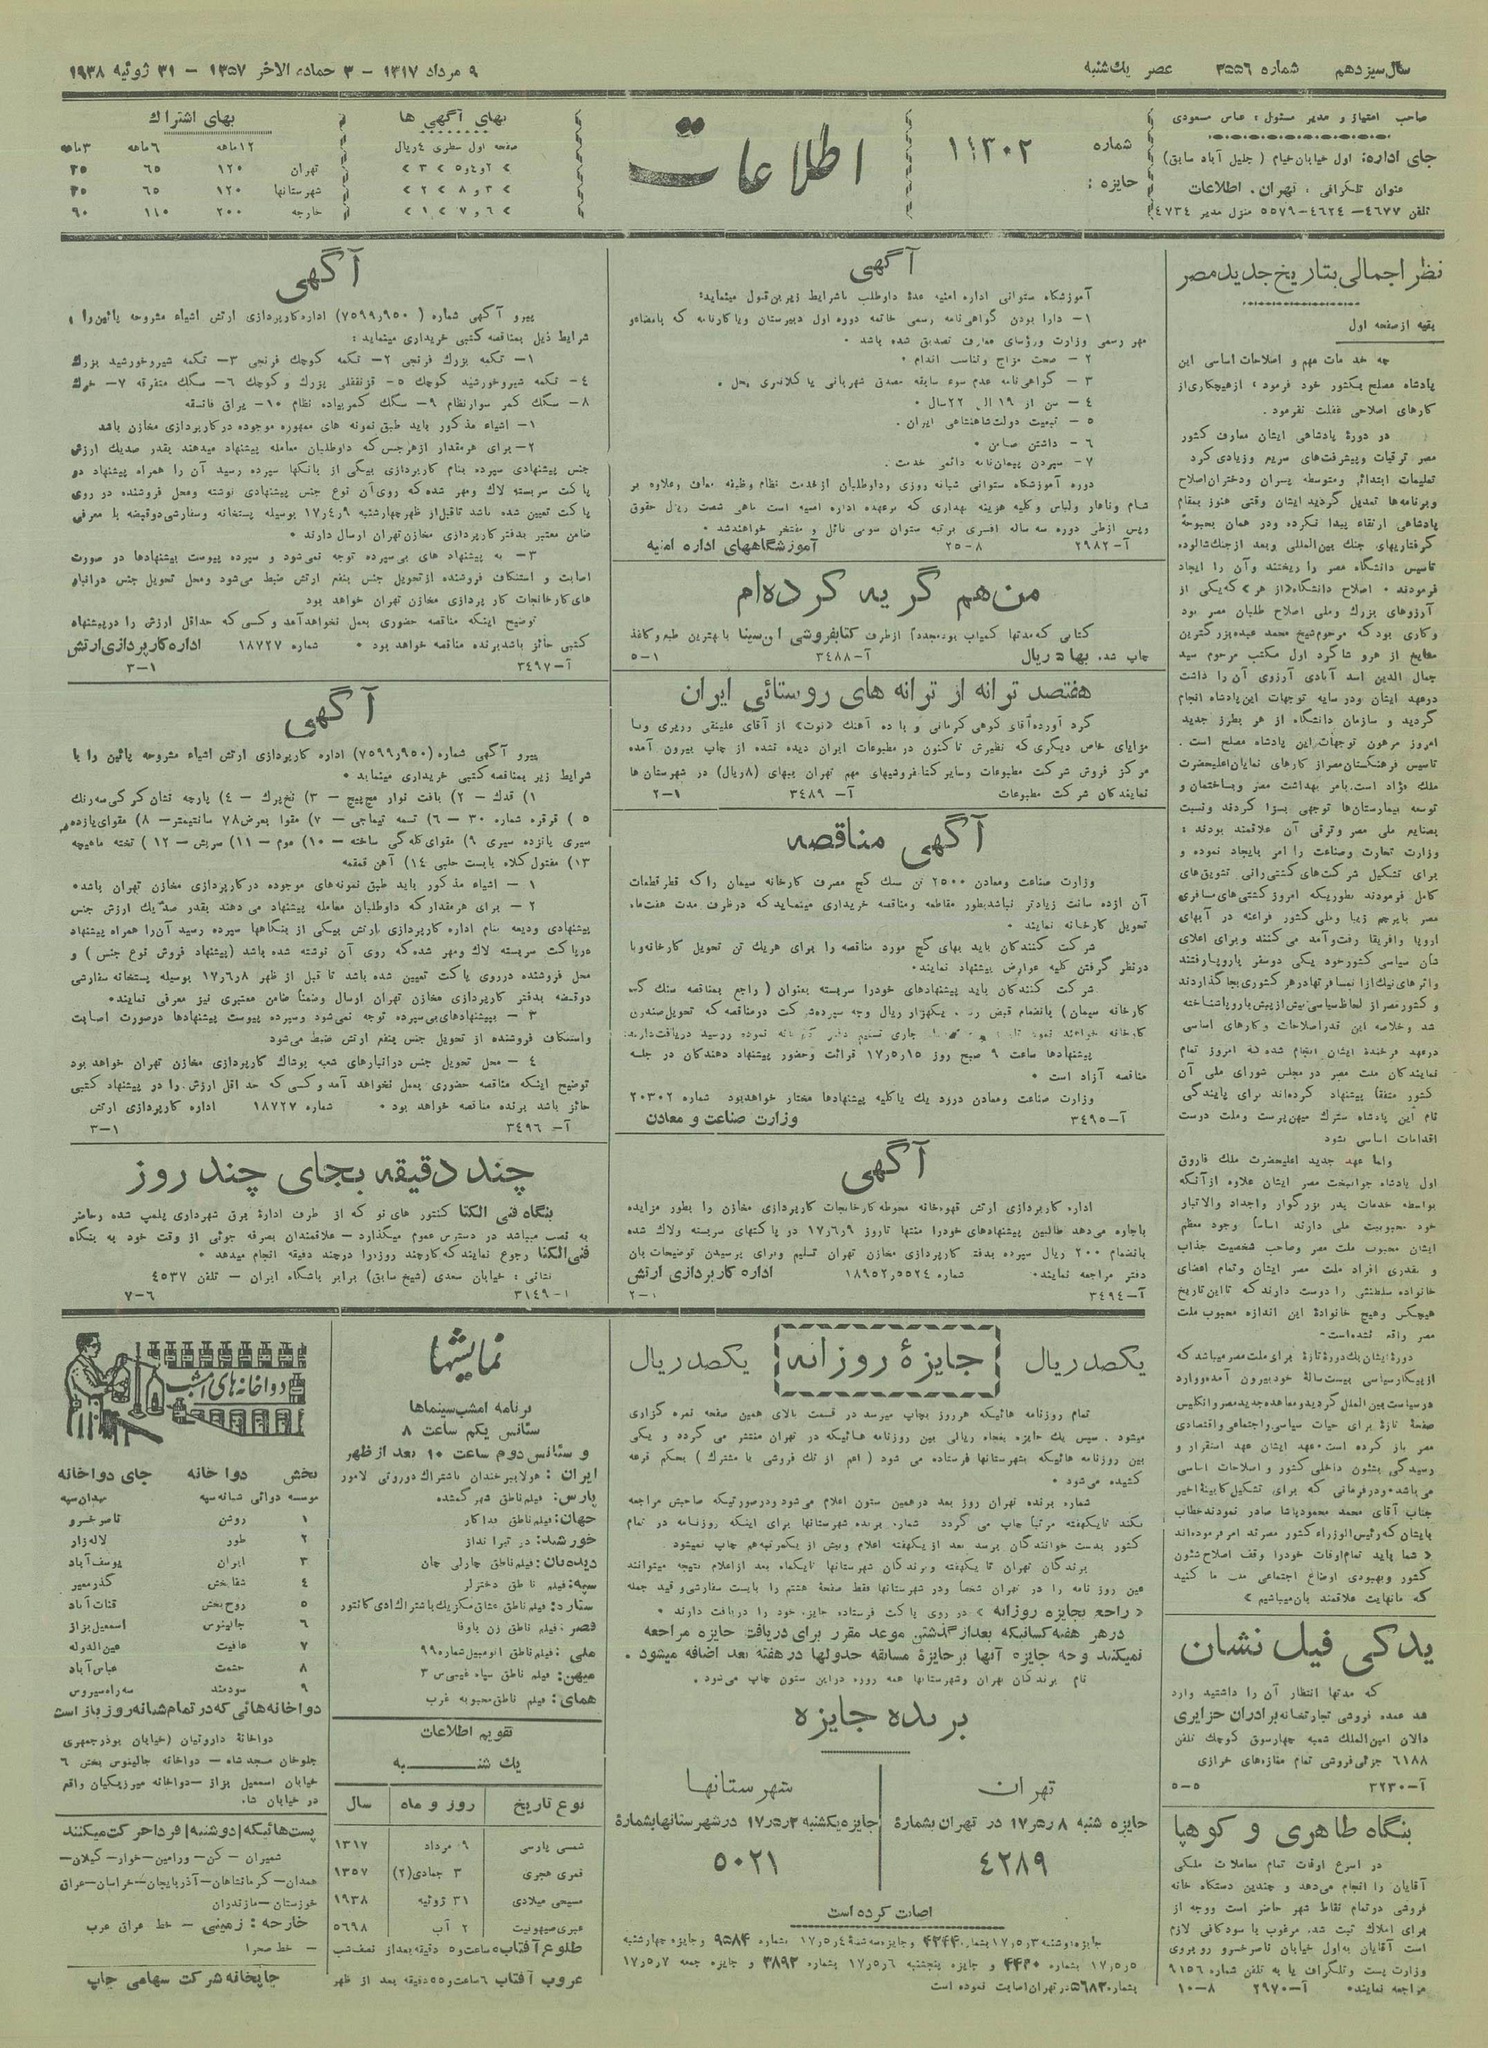 سال سیزدهم شماره ۳۵۵۶ عصر یك‌شنبه
۹ مرداد ۱۳۱۷ – ۳ جمادی الاخر ۱۳۵۷ – ۳۱ ژوئیه ۱۹۳۸
صاحب امتیاز و مدیر مسئول : عباس مسعودی
جای اداره: اول خیابان خیام ( جلیل آباد سابق )
عنوان تلگرافی : تهران . اطلاعات
تلفن ۴۶۷۷– ۴۶۲۴–۵۵۷۹ منزل مدیر ۴۷۳۴
شماره ۱۱۳۰۲
جایزه :
اطلاعات
بهای آگهی ها
صفحه اول سطری ۴ ریال
« ۲ و ۴ و ۵ « ۳ «
« ۳ و ۸ « ۲ «
« ۶ و ۷ « ۱ «
بهای اشتراك
۱۲ماهه ۶ماهه ۳ماهه
تهران ۱۲۰ ۶۵ ۳۵
شهرستانها ۱۲۰ ۶۵ ۳۵
خارجه ۲۰۰ ۱۱۰ ۹۰
نظر اجمالی بتاریخ جدید مصر
بقیه از صفحه اول
چه خدمات مهم و اصلاحات اساسی این
پادشاه مصلح بکشور خود فرمود ، از هیچکاری از
کارهای اصلاحی غفلت نفرمود .
در دورۀ پادشاهی ایشان معارف کشور
مصر ترقیات و پیشرفت‌های سریع و زیادی کرد
تعلیمات ابتدائی و متوسطه پسران و دختران اصلاح
و برنامه‌ها تعدیل گردید ایشان وقتی هنوز بمقام
پادشاهی ارتقاء پیدا نکرده و در همان بحبوحۀ
گرفتاریهای جنك بین‌المللی و بعد از جنك شالوده
تاسیس دانشگاه مصر را ریختند و آن را ایجاد
فرمودند • اصلاح دانشگاه «از هر» که یکی از
آرزوهای بزرك وملی اصلاح طلبان مصر بود
و کاری بود که مرحوم شیخ محمد عبده بزرگترین
مصلح از هر و شاگرد اول مکتب مرحوم سید
جمال الدین اسد آبادی آرزوی آن را داشت
در عهد ایشان و در سایه توجهات این پادشاه انجام
گردید و سازمان دانشگاه از هر بطرز جدید
امروز مرهون توجهات این پادشاه مصلح است .
تاسیس فرهنگستان مصر از کارهای نمایان اعلیحضرت
ملك فؤاد است. بامر بهداشت مصر و ساختمان و
توسعه بیمارستان‌ها توجهی بسزا کردند و نسبت
بصنایع ملی مصر و ترقی آن علاقمند بودند :
وزارت تجارت و صناعت را امر بایجاد نموده و
برای تشکیل شرکت‌های کشتی‌رانی تشویق‌های
کامل فرمودند بطوریکه امروز کشتی‌های مسافری
مصر با پرچم زیبا وملی کشور فراعنه در آبهای
اروپا و افریقا رفت و آمد می کنند و برای اعلای
شأن سیاسی کشور خود یکی دو سفر باروپا رفتند
و اثرهای نیك از این مسافرتها در هر کشوری بجا گذاردند
و کشور مصر از لحاظ سیاسی بیش از پیش باروپا شناخته
شد و خلاصه این قدر اصلاحات و کارهای اساسی
در عهد فرخندۀ ایشان انجام شده که امروز تمام
نمایندگان ملت مصر در مجلس شورای ملی آن
کشور متفقاً پیشنهاد کرده‌اند برای پایندگی
نام این پادشاه سترك میهن‌پرست وملت دوست
اقدامات اساسی بشود
واما عهد جدید اعلیحضرت ملك فاروق
اول پادشاه جوانبخت مصر ایشان علاوه از آنکه
بواسطه خدمات پدر بزرگوار و اجداد والاتبار
خود محبوبیت ملی دارند اساساً وجود معظم
ایشان محبوب ملت مصر و صاحب شخصیت جذاب
و بقدری افراد ملت مصر ایشان و تمام اعضای
خانواده سلطنتی را دوست دارند که تا این تاریخ
هیچکس و هیچ خانوادۀ این اندازه محبوب ملت
مصر واقع نشده‌است–
دورۀ ایشان یك دورۀ تازۀ برای ملت مصر میباشد که
از پیکار سیاسی بیست سالۀ خود بیرون آمده و وارد
در سیاست بین الملل گردید و معاهده جدید مصر و انگلیس
صفحۀ تازۀ برای حیات سیاسی و اجتماعی و اقتصادی
مصر باز کرده است • عهد ایشان عهد استقرار و
رسیدگی بشئون داخلی کشور و اصلاحات اساسی
می‌باشد • و در فرمانی که برای تشکیل کابینۀ اخیر
جناب آقای محمد محمود پاشا صادر نمودند خطاب
بایشان که رئیس الوزراء کشور مصرند امر فرموده‌اند
« شما باید تمام اوقات خود را وقف اصلاح شئون
کشور و بهبودی اوضاع اجتماعی مدنی ما کنید
که ما نهایت علاقمند بان میباشیم »
یدکی فیل نشان
که مدتها انتظار آن را داشتید وارد
شد عمده فروشی تجارتخانه برادران جزایری
دالان امین‌الملك شعبه چهارسوق کوچك تلفن
۶۱۸۸ جزئی‌فروشی تمام مغازه‌های خرازی
آ–۳۲۳۰ ۵–۵
بنگاه طاهری و کوهپا
در اسرع اوقات تمام معاملات ملکی
آقایان را انجام می‌دهد و چندین دستگاه خانه
فروشی در تمام نقاط شهر حاضر است و وجه از
برای املاك ثبت شده مرغوب با سود کافی لازم
است آقایان به‌اول خیابان ناصر خسرو روبروی
وزارت پست و تلگراف یا به تلفن شماره ۹۱۵۶
مراجعه نمایند• آ–۲۹۷۰ ۸–۱۰
آگهی
آموزشگاه ستوانی اداره امنیه عدۀ داوطلب باشرایط زیر بن‌قبول مینماید:
۱– دارا بودن گواهی نامه رسمی خاتمه دوره اول دبیرستان و یا کارنامه که بامضاء و
مهر رسمی وزارت و رؤسای معارف تصدیق شده باشد •
۲ – صحت مزاج و تناسب اندام •
۳ – گواهی‌نامه عدم سوء سابقه مصدق شهربانی یا کلانتری محل .
۴ – سن از ۱۹ الی ۲۲سال •
۵ – تبعیت دولت شاهنشاهی ایران .
۶ – داشتن ضامن •
۷– سپردن پیمان‌نامه دائمی خدمت .
دوره آموزشگاه ستوانی شبانه روزی و داوطلبان از خدمت نظام وظیفه معاف و علاوه بر
شام و ناهار و لباس و کلیه هزینه بهداری که برعهده اداره امنیه است ماهی شصت ریال حقوق
و پس از طی دوره سه ساله افسری برتبه ستوان سومی نائل و مفتخر خواهند شد •
آ–۲۹۸۲ ۸–۲۵ آموزشگاههای اداره امنیه
من هم گریه کرده‌ام
کتابی که مدتها کمیاب بود مجدداً از طرف کتابفروشی ابن‌سینا با بهترین طبع و کاغذ
چاپ شد. بها ۵ ریال آ–۳۴۸۸ ۱–۵
هفتصد ترانه از ترانه های روستائی ایران
گرد آورده آقای کوهی کرمانی و با ده آهنك «نوت» از آقای علینقی وزیری و با
مزایای خاص دیگری که نظیرش تاکنون در مطبوعات ایران دیده نشده از چاپ بیرون آمده
مرکز فروش شرکت مطبوعات و سایر کتابفروشیهای مهم تهران ببهای (۸ ریال) در شهرستان ها
نمایندگان شرکت مطبوعات آ– ۳۴۸۹ ۱–۲
آگهی مناقصه
وزارت صناعت و معادن ۲۵۰۰ تن سنك گچ مصرف کارخانه سیمان را که قطر قطعات
آن از ده سانت زیادتر نباشد بطور مقاطعه و مناقصه خریداری مینماید که در ظرف مدت هفت ماه
تحویل کارخانه نمایند •
شرکت کنندگان باید بهای گچ مورد مناقصه را برای هریك تن تحویل کارخانه و با
درنظر گرفتن کلیه عوارض پیشنهاد نمایند•
شرکت کنندگان باید پیشنهادهای خود را سربسته بعنوان ( راجع بمناقصه سنك گچ
کارخانه سیمان ) بانضمام قبض یکهزار ریال وجه سپرده شرکت در مناقصه که تحویل صندوق
کارخانه خواهند نمود جاری تسلیم نموده و رسید دریافت دارند.
پیشنهادها ساعت ۹ صبح روز ۱۵ر۵ر۱۷ قرائت و حضور پیشنهاد دهندگان در جلسه
مناقصه آزاد است •
وزارت صناعت و معادن در رد یك یا کلیه پیشنهادها مختار خواهد بود شماره ۲۰۳۰۲
آ–۳۴۹۵ وزارت صناعت و معادن
آگهی
اداره کارپردازی ارتش قهوه‌خانه محوطه کارخانجات کارپردازی مخازن را بطور مزایده
باجاره می‌دهد طالبین پیشنهادهای خود را منتها تا روز ۹ر۶ر۱۷ در پاکتهای سربسته ولاك شده
بانضمام ۲۰۰ ریال سپرده بدفتر کارپردازی مخازن تهران تسلیم و برای پرسیدن توضیحات بان
دفتر مراجعه نمایند• شماره ۱۸۹۵۲ر۵۵۲۴ اداره کارپردازی ارتش
آ–۳۴۹۴ ۱–۲
آگهی
پیرو آگهی شماره ( ۹۵۰ر۷۵۹۹) اداره کارپردازی ارتش اشیاء مشروحه پائین را با
شرایط ذیل بمناقصه کتبی خریداری مینماید :
۱– تکمه بزرك فرنجی ۲– تکمه کوچك فرنجی ۳– تکمه شیروخورشید بزرك
۴– تکمه شیروخورشید کوچك ۵– قزنقفلی بزرك و کوچك ۶– سگك متفرقه ۷–
۸– سگك کمر سوار نظام ۹– سگك کمر پیاده نظام ۱۰– یراق فانسقه
۱– اشیاء مذکور باید طبق نمونه های ممهوره موجوده در کارپردازی مخازن باشد
۲– برای هر مقدار از هر جنس که داوطلبان معامله پیشنهاد میدهند بقدر صدیك ارزش
جنس پیشنهادی سپرده بنام کارپردازی بیکی از بانکها سپرده رسید آن را همراه پیشنهاد در
پاکت سربسته لاك و مهر شده که روی آن نوع جنس پیشنهادی نوشته و محل فروشنده در روی
پاکت تعیین شده باشد تا قبل از ظهر چهارشنبه ۹ر۴ر۱۷ بوسیله پستخانه و سفارشی دوقبضه با معرفی
ضامن معتبر بدفتر کارپردازی مخازن تهران ارسال دارند •
۳– به پیشنهاد های بی‌سپرده توجه نمی‌شود و سپرده پیوست پیشنهادها در صورت
اصابت و استنکاف فروشنده از تحویل جنس بنفع ارتش ضبط می‌شود و محل تحویل جنس در انبار
های کارخانجات کار پردازی مخازن تهران خواهد بود
توضیح اینکه مناقصه حضوری بعمل نخواهد آمد و کسی که حداقل ارزش را در پیشنهاد
کتبی حائز باشد برنده مناقصه خواهد بود • شماره ۱۸۷۲۷ اداره کارپردازی ارتش
آ–۳۴۹۷ ۱–۳
آگهی
پیرو آگهی شماره (۹۵۰ر۷۵۹۹) اداره کارپردازی ارتش اشیاء مشروحه پائین را با
شرایط زیر بمناقصه کتبی خریداری مینماید •
۱) قدك – ۲) بافت نوار مچ‌پیچ – ۳) نخ‌پرك – ۴) پارچه نشان گرکی سه‌رنك
۵ ) قرقره شماره ۳۰ – ۶) تسمه تیماجی – ۷) مقوا بعرض ۷۸ سانتیمتر – ۸) مقوای یازده
سیری پانزده سیری ۹) مقوای کله گی ساخته – ۱۰) موم – ۱۱) سریش – ۱۲ ) تخته ماهیچه
۱۳) مفتول کلاه بایست حلبی ۱۴) آهن قمقمه
۱ – اشیاء مذکور باید طبق نمونه‌های موجوده در کارپردازی مخازن تهران باشد•
۲ – برای هرمقدار که داوطلبان معامله پیشنهاد می دهند بقدر صدیك ارزش جنس
پیشنهادی ودیعه بنام اداره کارپردازی ارتش بیکی از بنگاهها سپرده رسید آن‌را همراه پیشنهاد
در پاکت سربسته لاك و مهر شده که روی آن نوشته شده باشد (پیشنهاد فروش نوع جنس ) و
محل فروشنده در روی پاکت تعیین شده باشد تا قبل از ظهر ۸ر۶ر۱۷ بوسیله پستخانه سفارشی
دوقبضه بدفتر کارپردازی مخازن تهران ارسال و ضمناً ضامن معتبری نیز معرفی نمایند•
۳ – بپیشنهادهای بی‌سپرده توجه نمی‌شود و سپرده پیوست پیشنهادها درصورت اصابت
واستنکاف فروشنده از تحویل جنس بنفع ارتش ضبط می‌شود
۴ – محل تحویل جنس در انبارهای شعبه پوشاك کارپردازی مخازن تهران خواهد بود
توضیح اینکه مناقصه حضوری بعمل نخواهد آمد و کسی که حد اقل ارزش را در پیشنهاد کتبی
حائز باشد برنده مناقصه خواهد بود • شماره ۱۸۷۲۷ اداره کارپردازی ارتش
آ– ۳۴۹۶ ۱–۳
چند دقیقه بجای چند روز
بنگاه فنی الکتا کنتور های نو که از طرف ادارۀ برق شهرداری پلمپ شده و حاضر
به نصب میباشد در دسترس عموم میگذارد – علاقمندان بصرفه جوئی از وقت خود به بنگاه
فنی‌الکتا رجوع نمایند که کار چند روزه‌را درچند دقیقه انجام میدهد •
نشانی : خیابان سعدی (شیخ سابق) برابر باشگاه ایران – تلفن ۴۵۳۷
آ–۳۱۴۹ ۶–۷
یکصد ریال جایزۀ روزانه یکصد ریال
تمام روزنامه هائیکه هرروز بچاپ میرسد در قسمت بالای همین صفحه نمره گزاری
میشود . سپس یك جایزه پنجاه ریالی بین روزنامه هائیکه در تهران منتشر می گردد و یکی
بین روزنامه هائیکه بشهرستانها فرستاده می شود ( اعم از تك فروشی یا مشترك ) بحکم قرعه
کشیده می‌شود •
شماره برنده تهران روز بعد در همین ستون اعلام می‌شود و درصورتیکه صاحبش مراجعه
نکند تا یکهفته مرتباً چاپ می گردد شماره برنده شهرستانها برای اینکه روزنامه در تمام
کشور بدست خوانندگان برسد بعد از یکهفته اعلام و بیش از یکمرتبه هم چاپ نمیشود
برندگان تهران تا یکهفته و برندگان شهرستانها تا یکماه بعد از اعلام نتیجه میتوانند
عین روز نامه را در تهران شخصاً و در شهرستانها فقط صفحۀ هشتم را بایست سفارشی و قید جمله
« راجع بجایزه روزانه » در روی پاکت فرستاده جایزه خود را دریافت دارند •
درهر هفته کسانیکه بعد از گذشتن موعد مقرر برای دریافت جایزه مراجعه
نمیکنند وجه جایزه آنها برجایزۀ مسابقه جدولها درهفته بعد اضافه میشود .
نام برندگان تهران و شهرستانها همه روزه دراین ستون چاپ می‌شود .
برنده جایزه
تهران
جایزه شنبه ۸ر۵ر۱۷ در تهران بشمارۀ
۴۲۸۹
شهرستانها
جایزه یکشنبه ۲ر۵ر۱۷ در شهرستانها بشمارۀ
۵۰۲۱
اصابت کرده است
جایزه دوشنبه ۳ر۵ر۱۷ بشماره ۴۲۴۴ و جایزه سه‌شنبۀ ۴ر۵ر۱۷ بشماره ۹۵۸۴ و جایزه چهارشنبه
۵ر۵ر۱۷ بشماره ۴۴۲۰ و جایزه پنجشنبه ۶ر۵ر۱۷ بشماره ۳۸۹۲ و جایزه جمعه ۷ر۵ر۱۷
بشماره ۵۶۸۳ در تهران اصابت نموده است
نمایشها
برنامه امشب‌سینماها
سئانس یکم ساعت ۸
و سئانس دوم ساعت ۱۰ بعد از ظهر
ایران : هولاببر خندان باشتراك دوروتی لامور
پارس: فیلم ناطق شهر گمشده
جهان: فیلم ناطق فداکار
خورشید: در تیرا نداز
دیده‌بان: فیلم ناطق چارلی چان
سپه: فیلم ناطق دختر لر
ستاره: فیلم ناطق عشاق مکزیك باشتراك ادی کانتور
قصر: فیلم ناطق زن باوفا
ملی: فیلم ناطق اتومبیل شماره ۹۹
میهن: فیلم ناطق سپاه غیبی س ۳
همای: فیلم ناطق محبوبه غرب
تقویم اطلاعات
یك شنبه
نوع تاریخ روز و ماه سال
شمسی پارسی ۹ مرداد ۱۳۱۷
قمری هجری ۳ جمادی(۲) ۱۳۵۷
مسیحی میلادی ۳۱ ژوئیه ۱۹۳۸
عبری صیهونیت ۲ آب ۵۶۹۸
طلوع آفتاب ۵ ساعت و ۵ دقیقه بعد از نصف شب
غروب آفتاب ۶ ساعت و ۵۵ دقیقه بعد از ظهر
دواخانه‌های امشب
بخش دوا خانه جای دواخانه
موسسه دوائی شبانه سپه میدان سپه
۱ روشن ناصر خسرو
۲ طور لاله‌زار
۳ ایران یوسف‌آباد
۴ شفابخش گذر معیر
۵ روح‌بخش قنات آباد
۶ جالینوس اسمعیل‌بزاز
۷ عافیت عین‌الدوله
۸ حشمت عباس‌آباد
۹ سودمند سه‌راه سیروس
دواخانه‌هائی که در تمام شبانه روز باز است
دواخانۀ داروئیان (خیابان بوذرجمهری
جلوخان مسجد شاه – دواخانه جالینوس بخش ۶
خیابان اسمعیل بزاز – دواخانه میرزیگیان واقع
در خیابان شاه
پست‌هائیکه (دوشنبه) فردا حرکت میکنند
شمیران – کن – ورامین – خوار – گیلان–
همدان – کرمانشاهان – آذربایجان – خراسان – عراق
خوزستان – مازندران
خارجه : زمینی – خط عراق عرب
– خط صحرا
چاپخانه شرکت سهامی چاپ